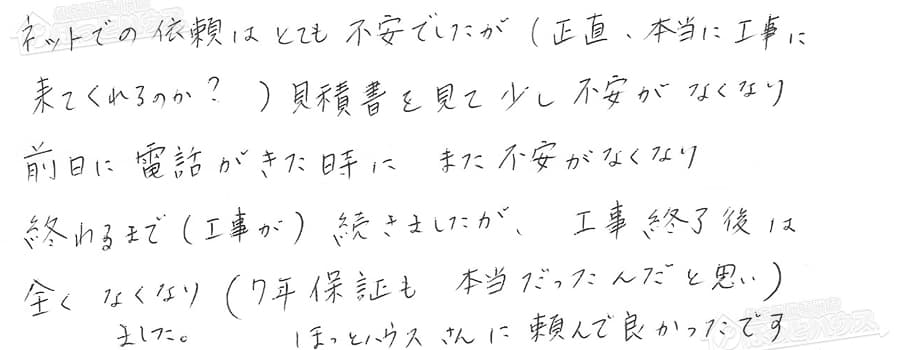 ネットでの依頼はとても不安でしたが(正直、本当に工事に
来てくれるのか? )見積書を見て少し不安がなくなり
前日に電話がきた時に また不安がなくなり
終わるまで(工事が)続きましたが、 工事終了後は
全くなくなり(7年保証も 本当だったんだと思い)
ました。 ほっとハウスさんに頼んで良かったです